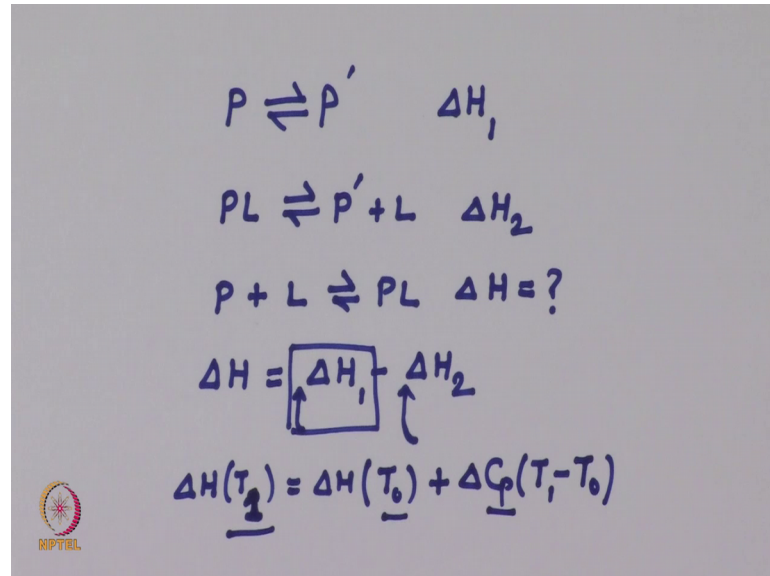 P ⇌ P′ ΔH₁
PL ⇌ P′ + L ΔH₂
P + L ⇌ PL ΔH = ?
ΔH = ΔH₁ - ΔH₂
ΔH(T₁) = ΔH(T₀) + ΔCp(T₁-T₀)
NPTEL